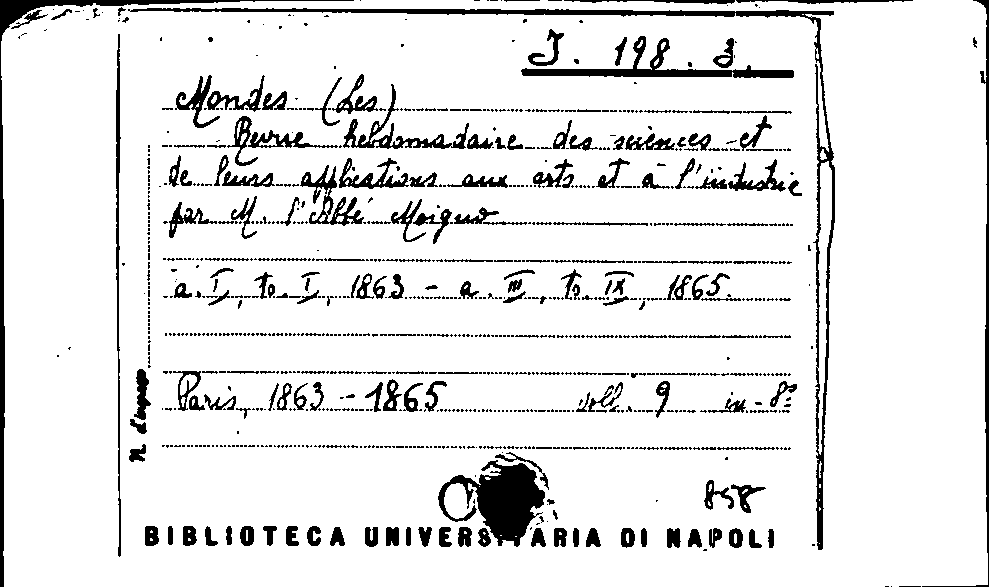 J. 198. 3.
Mondes (Les)
Revue hebdomadaire des sciences et
de leurs applications aux arts et à l'industrie
par M. l'Abbé Moigno
a. I, to. I, 1863 - a. III, to. IX, 1865.
Paris, 1863 - 1865 voll. 9 in-8º
N. d'ingresso
858
BIBLIOTECA UNIVERSITARIA DI NAPOLI